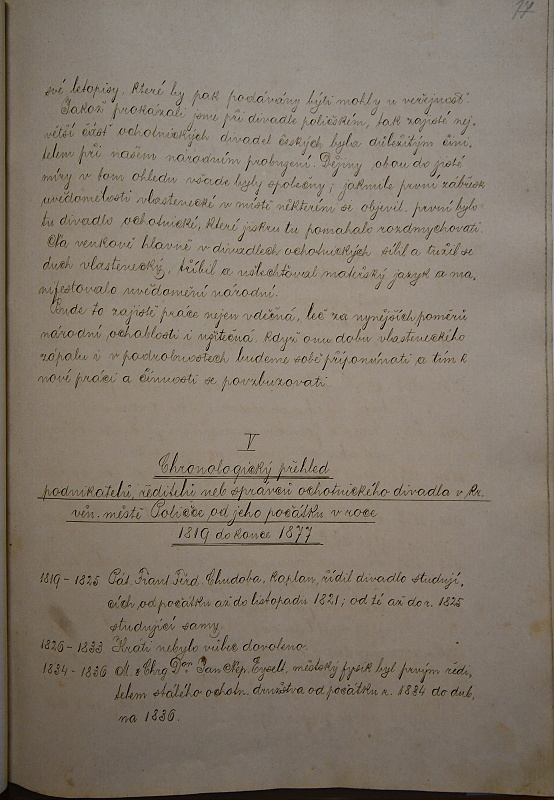 77
své letopisy, které by pak podávány býti mohly u veřejnosť.
Jakož prokázali jsme při divadle poličském, tak zajisté nej-
větší část ochotnických divadel českých byla důležitým čini-
telem při našem národním probuzení. Dějiny obou do jisté
míry v tom ohledu všude byly společny; jakmile první zábřesk
uvědomělosti vlastenecké v místě některém se objevil, první bylo
tu divadlo ochotnické, které jiskru tu pomáhalo rozdmychovati.
Na venkově hlavně v divadlech ochotnických sílil a tužil se
duch vlastenecký, tříbil a ušlechťoval mateřský jazyk a ma-
nifestovalo uvědomění národní.
Bude to zajisté práce nejen vděčná, leč za nynějších poměrů
národní ochablosti i užitečná, když onu dobu vlasteneckého
zápalu i v podrobnostech budeme sobě připomínati a tím k
nové práci a činnosti se povzbuzovati.
V
Chronologický přehled
podnikatelů, ředitelů neb správců ochotnického divadla v kr.
věn. městě Poličce od jeho počátku v roce
1819 do konce 1877
1819 - 1825 Pát. Frant. Ferd. Chudoba, kaplan, řídil divadlo studují-
cích, od počátku až do listopadu 1821; od té až do r. 1825
studující samy.
1826 - 1833 Hráti nebylo vůbec dovoleno.
1834 - 1836 M. & Chrg. Dor. Jan Nep. Eyselt, městský fysik byl prvým ředi-
telem stálého ochotn. družstva od počátku r. 1834 do dub.
na 1836.